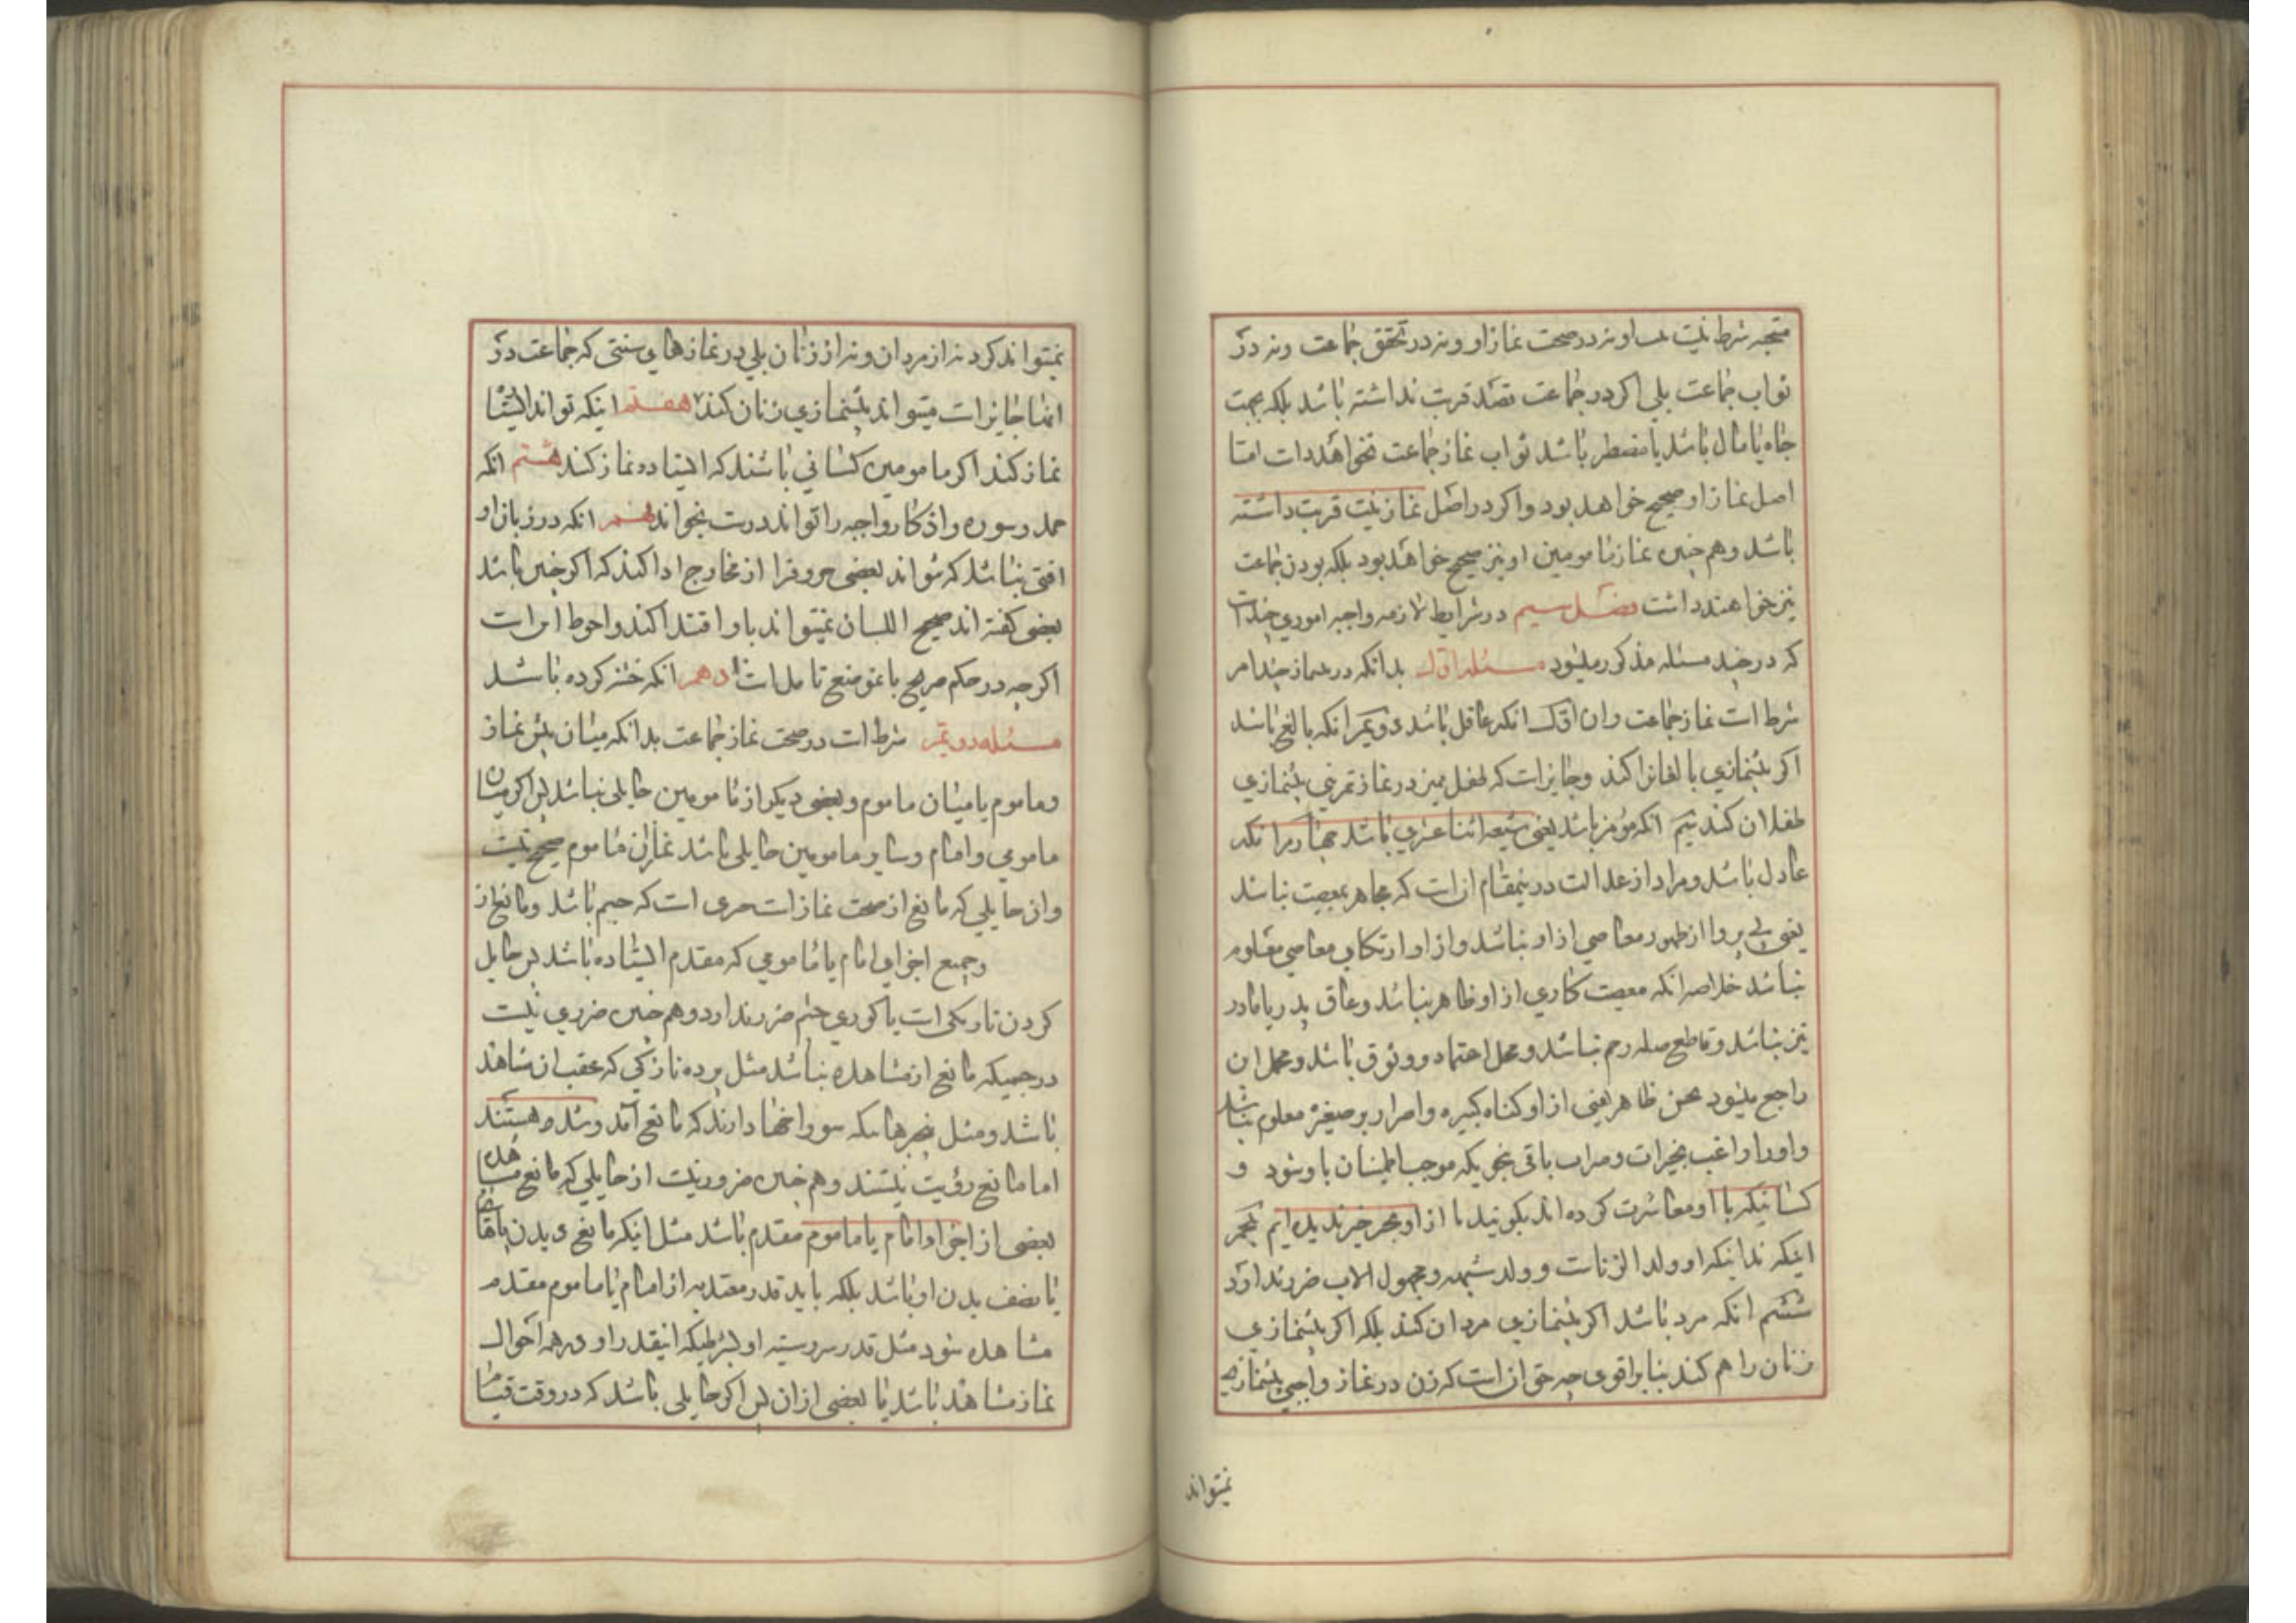 شرط نیست نه او نه در صحت نماز او و نه در تحقق جماعت و نه در
ثواب جماعت بلی اکر در جماعت قصد قربت نداشته باشد بلکه بجهت
جاه یا مال باشد یا مضطر باشد ثواب نماز جماعت نخواهد داشت اما
اصل نماز او صحیح خواهد بود و اکر در اصل نماز نیت قربت داشته
باشد و هم چنین نماز مامومین او نیز صحیح خواهد بود بلکه بودن جماعت
نیز خواهند داشت فصل سیم در شرایط لازمه و واجبه اموری چند است
که در چند مسئله مذکور میشود مسئله اول بدانکه در نماز چند امر
شرط است نماز جماعت و ان اول انکه عاقل باشد دویم انکه بالغ باشد
اکر پیشنمازی بالغانرا کند و جایز است که طفل ممیز در نماز تمرینی پیشنمازی
طفلان کند سیم انکه مؤمن باشد یعنی شیعه اثنا عشری باشد چهارم انکه
عادل باشد و مراد از عدالت درینمقام انست که مجاهر بمعصیت نباشد
یعنی بی پروا از ظهور معاصی از او نباشد و از او ارتکاب معاصی معلوم
نباشد خلاصه انکه معصیت کاری از او ظاهر نباشد و عاق پدر یا مادر
نیز نباشد و قاطع صله رحم نباشد و محل اعتماد و وثوق باشد و محل ان
راجع میشود بحسن ظاهر یعنی از او کناه کبیره و اصرار بر صغیره معلوم نباشد
و او را راغب بخیرات و مراتب باقی بنحویکه موجب اطمینان باو شود و
کسانیکه با او معاشرت کرده اند بکویند ما از او بجز خیر ندیده ایم پنجم
اینکه ندانیکه او ولد الزناست و ولد شبهه و مجهول الاب ضرر ندارد
ششم انکه مرد باشد اکر پیشنمازی مردان کند بلکه اکر پیشنمازی
زنان را هم کند بنا بر اقوی چه حق انست که زن در نماز واجبی پیشنمازی
نمیتواند
نمیتواند کرد نه از مردان و نه از زنان بلی در نمازهای سنتی که جماعت در
انها جایز است میتواند پیشنمازی زنان کند هفتم اینکه تواند ایستاد
نماز کند اکر مامومین کسانی باشند که ایستاده نماز کنند هشتم انکه
حمد و سوره و اذکار واجبه را تواند درست بخواند نهم انکه در زبان او
افتی نباشد که نتواند بعضی حروفرا از مخارج ادا کند که اکر چنین باشد
بعضی کفته اند صحیح اللسان نمیتواند باو اقتدا کند و احوط این است
اکر چه در حکم صریح باین موضع تامل است دهم انکه ختنه کرده باشد
مسئله دویم شرط است در صحت نماز جماعت بدانکه میان پیش نماز
و ماموم یا میان ماموم و بعضی دیکر از مامومین حایلی نباشد پس اکر میان
مامومی و امام و سایر مامومین حایلی باشد نماز ان ماموم صحیح نیست
و از حایلی که مانع از صحت نماز است حری است که جسم باشد و مانع از
و جمیع اجزای امام یا مامومی که مقدم ایستاده باشد پس حایل
کردن تاریکی است یا کوری چشم ضرر ندارد و هم چنین ضرری نیست
در جسمیکه مانع از مشاهده نباشد مثل پرده نازکی که عقب ان مشاهد
باشد و مثل پنجرهائیکه سوراخها دارند که مانع آمد و شد هستند
اما مانع رؤیت نیستند و هم چنین ضرور نیست از حایلی که مانع مشاهده
بعضی از اجزاء امام یا ماموم مقدم باشد مثل اینکه مانع دیدن پاها
یا نصف بدن او باشد بلکه باید قدر معتد به از امام یا ماموم مقدم
مشاهده شود مثل قدر سر و سینه او بشرطیکه اینقدر او در همه احوال
نماز مشاهد باشد یا بعضی از ان پس اکر حایلی باشد که در وقت قیام